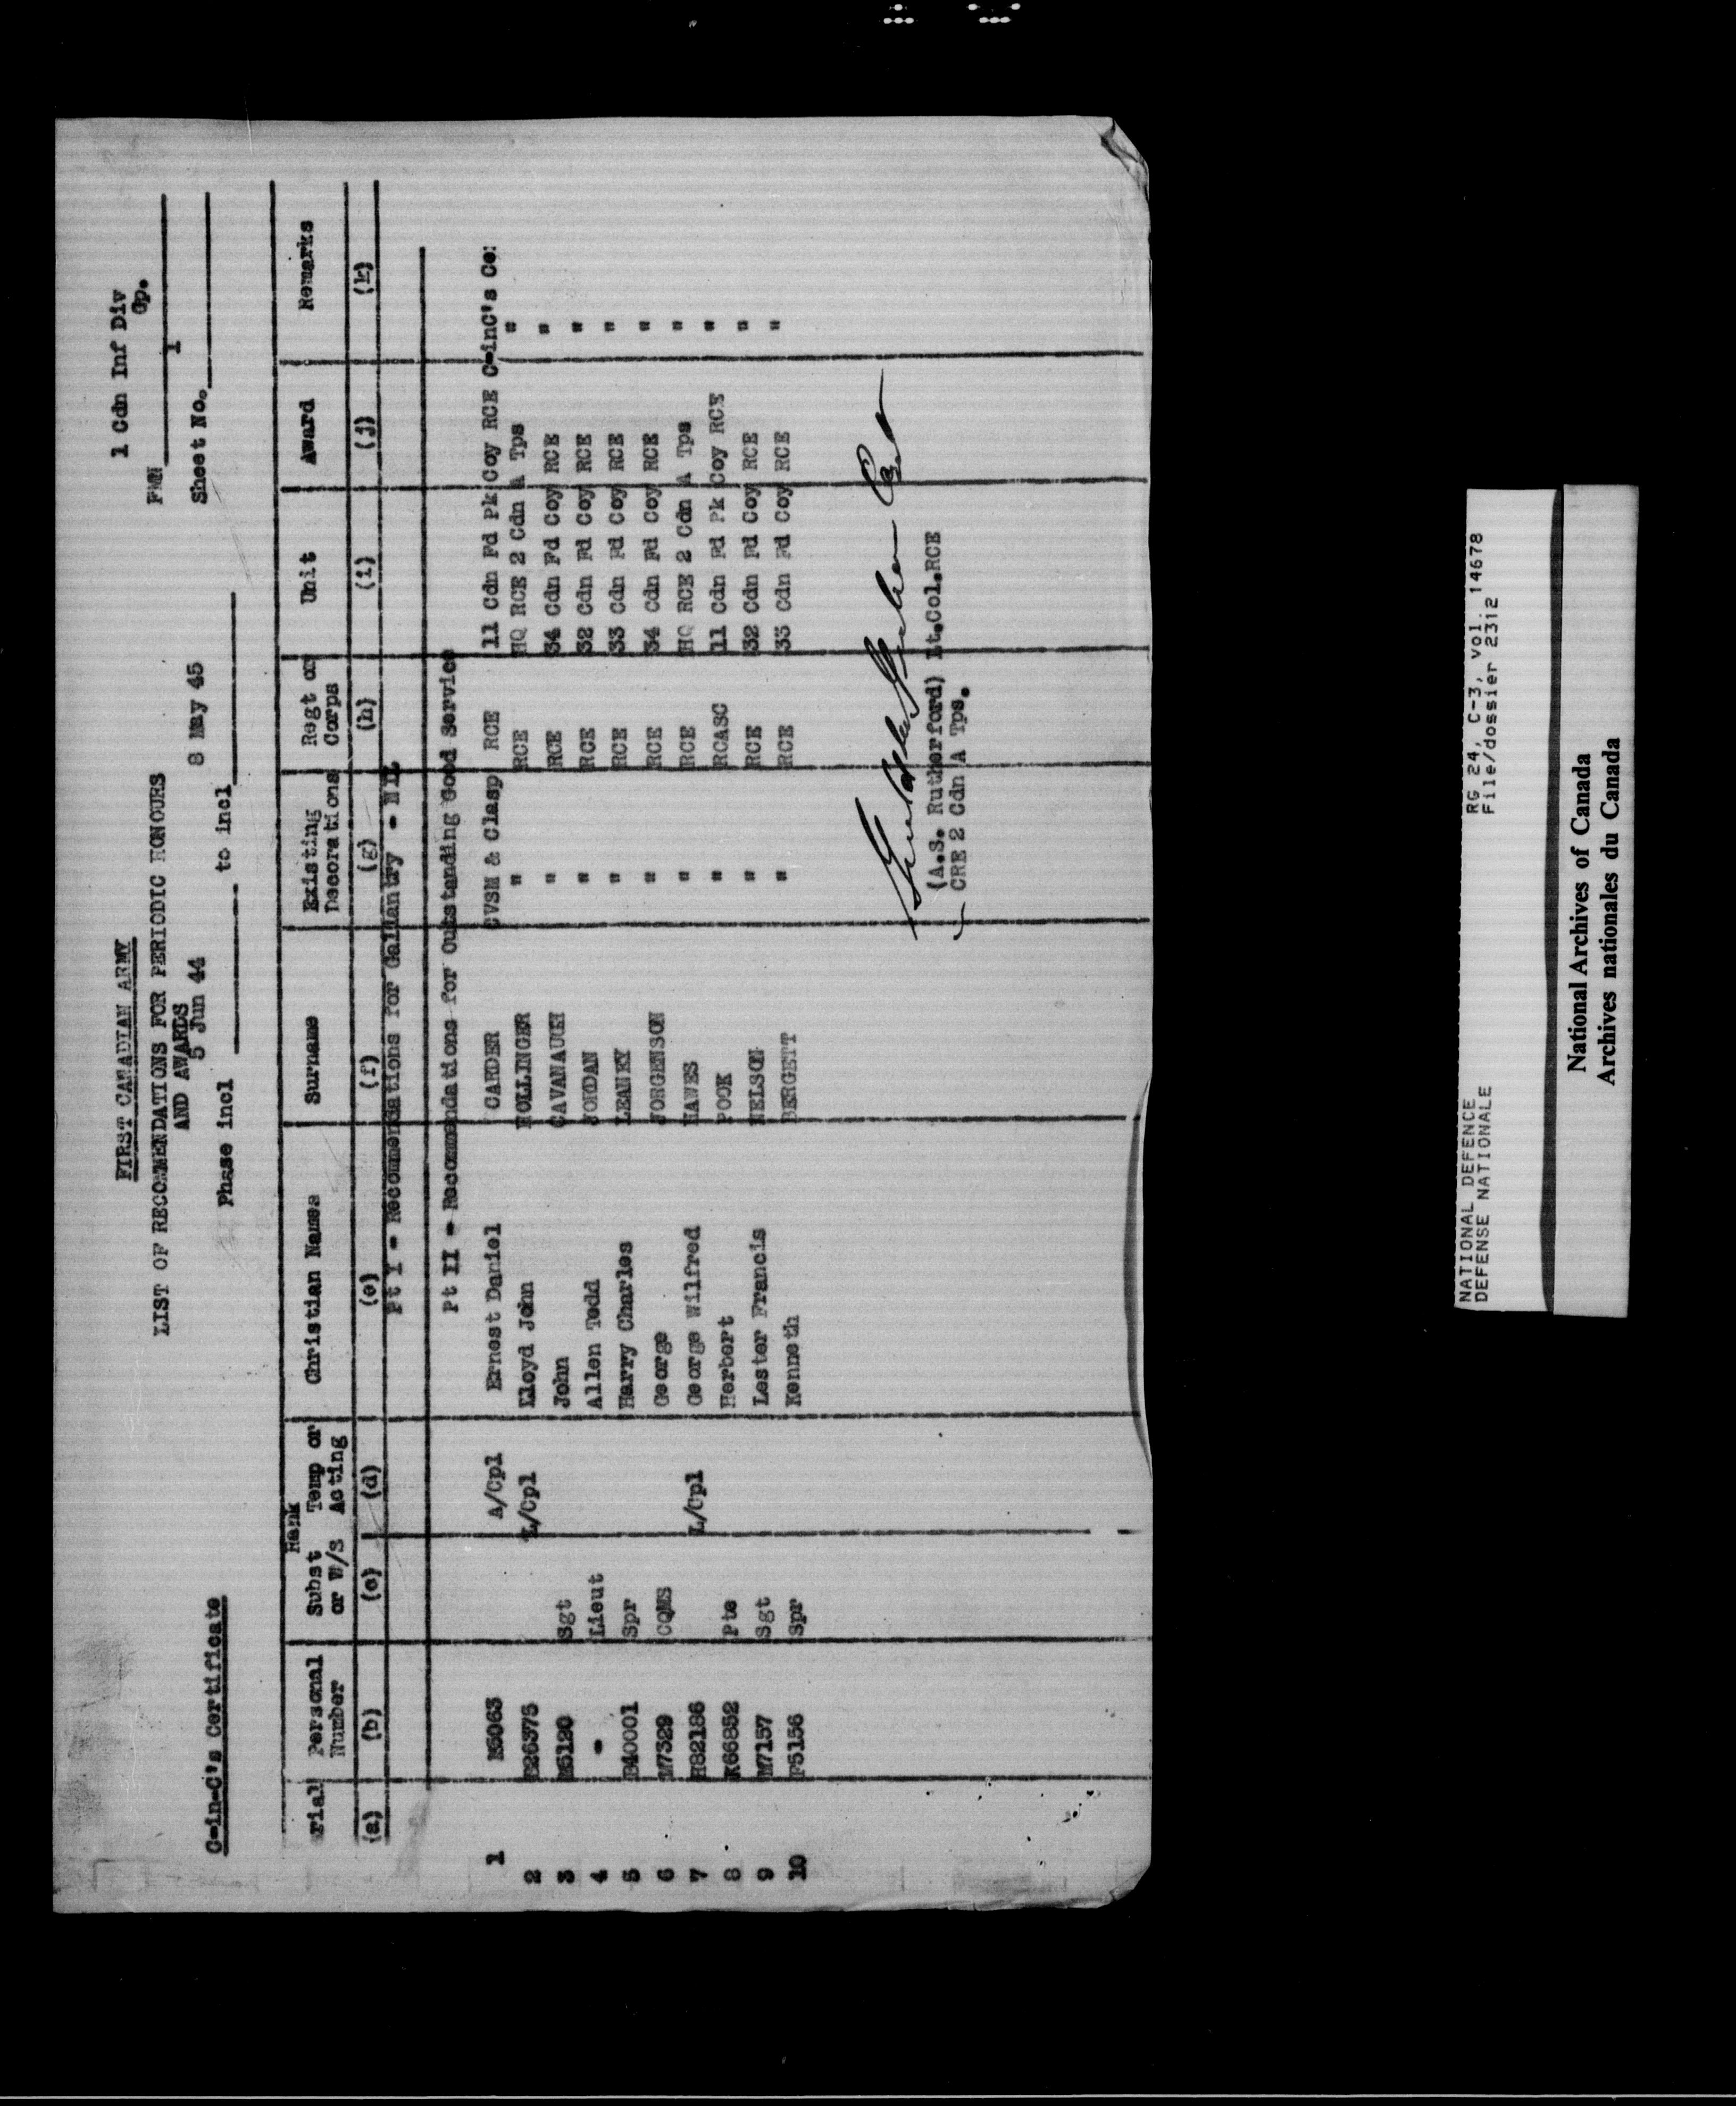 FIRST CANADIAN ARMY
LIST OF RECOMMENDATIONS FOR PERIODIC HONOURS
AND AWARDS
1 Cdn Inf Div
Gp.
FMN
C-in-C's Certificate
Phase incl 5 Jun 44 to incl 8 May 45
Sheet No. 1
rial Personal Number Rank Subst or W/S Temp or Acting Christian Names Surname Existing Decorations Regt or Corps Unit Award Remarks
(a) (b) (c) (d) (e) (f) (g) (h) (i) (j) (k)
Pt I - Recommendations for Gallantry - NIL
Pt II - Recommendations for Outstanding Good Service
1 M5063 A/Cpl Ernest Daniel CARDER CVSM & Clasp RCE 11 Cdn Fd Pk Coy RCE C-inC's Ce
2 B26375 L/Cpl Lloyd John HOLLINGER " RCE HQ RCE 2 Cdn A Tps "
3 M5120 Sgt John CAVANAUGH " RCE 34 Cdn Fd Coy RCE "
4 - Lieut Allen Todd JORDAN " RCE 32 Cdn Fd Coy RCE "
5 B40001 Spr Harry Charles LEANEY " RCE 33 Cdn Fd Coy RCE "
6 M7329 CQMS George JORGENSON " RCE 34 Cdn Fd Coy RCE "
7 H82186 L/Cpl George Wilfred HAWES " RCE HQ RCE 2 Cdn A Tps "
8 K66852 Pte Herbert POOK " RCASC 11 Cdn Fd Pk Coy RCE "
9 M7157 Sgt Lester Francis NELSON " RCE 32 Cdn Fd Coy RCE "
10 F5156 Spr Kenneth BERGETT " RCE 33 Cdn Fd Coy RCE "
(A.S. Rutherford) Lt.Col.RCE
CRE 2 Cdn A Tps.
NATIONAL DEFENCE RG 24, C-3, vol. 14678
DEFENSE NATIONALE File/dossier 2312
National Archives of Canada
Archives nationales du Canada